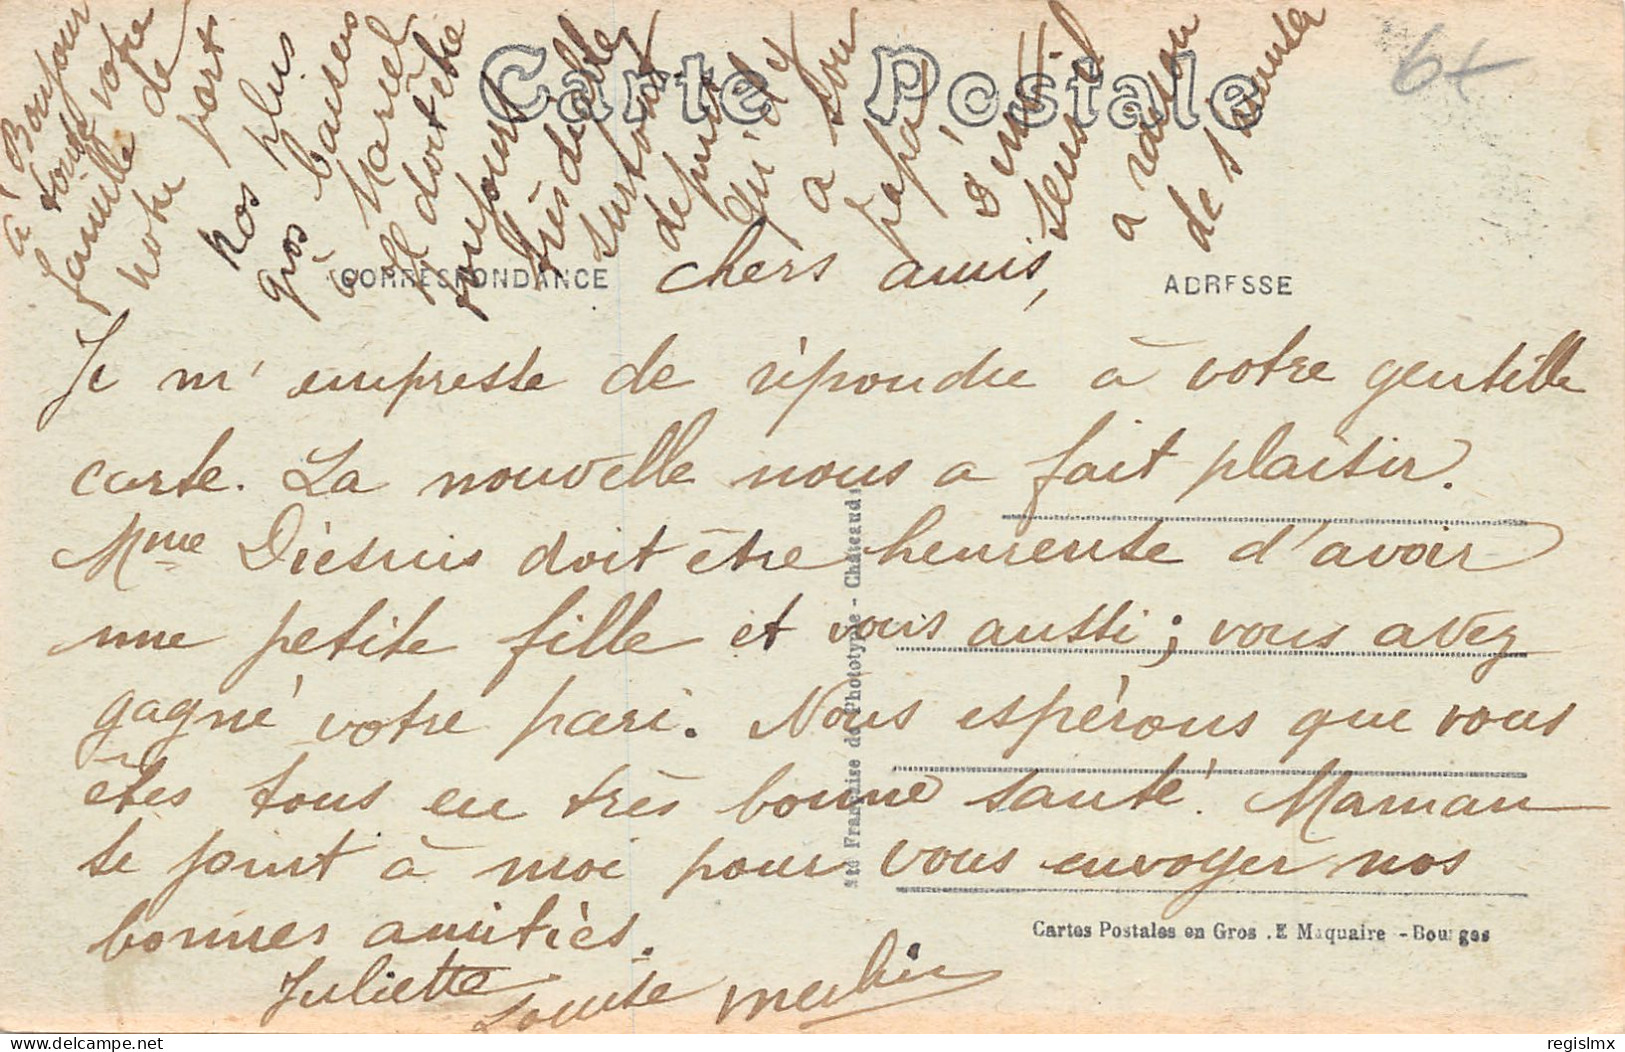 Carte Postale
6+
CORRESPONDANCE
ADRESSE
Bonjour
à toute votre
famille de
notre part
Nos plus
gros baisers
à Marcel
il doit être
toujours
très diable
surtout
depuis
qu'il y
a son
papa
sensé
a raison
de s'amuser
chers amis,
Je m'empresse de répondre à votre gentille
carte. La nouvelle nous a fait plaisir.
Mme doit être heureuse d'avoir
une petite fille et vous aussi; vous avez
gagné votre pari. Nous espérons que vous
êtes tous en très bonne santé. Maman
se joint à moi pour vous envoyer nos
bonnes amitiés.
Juliette Louise
Sté Française de Phototypie - Châteaud
Cartes Postales en Gros .E Maquaire - Bourges
delcampe.net
regislmx